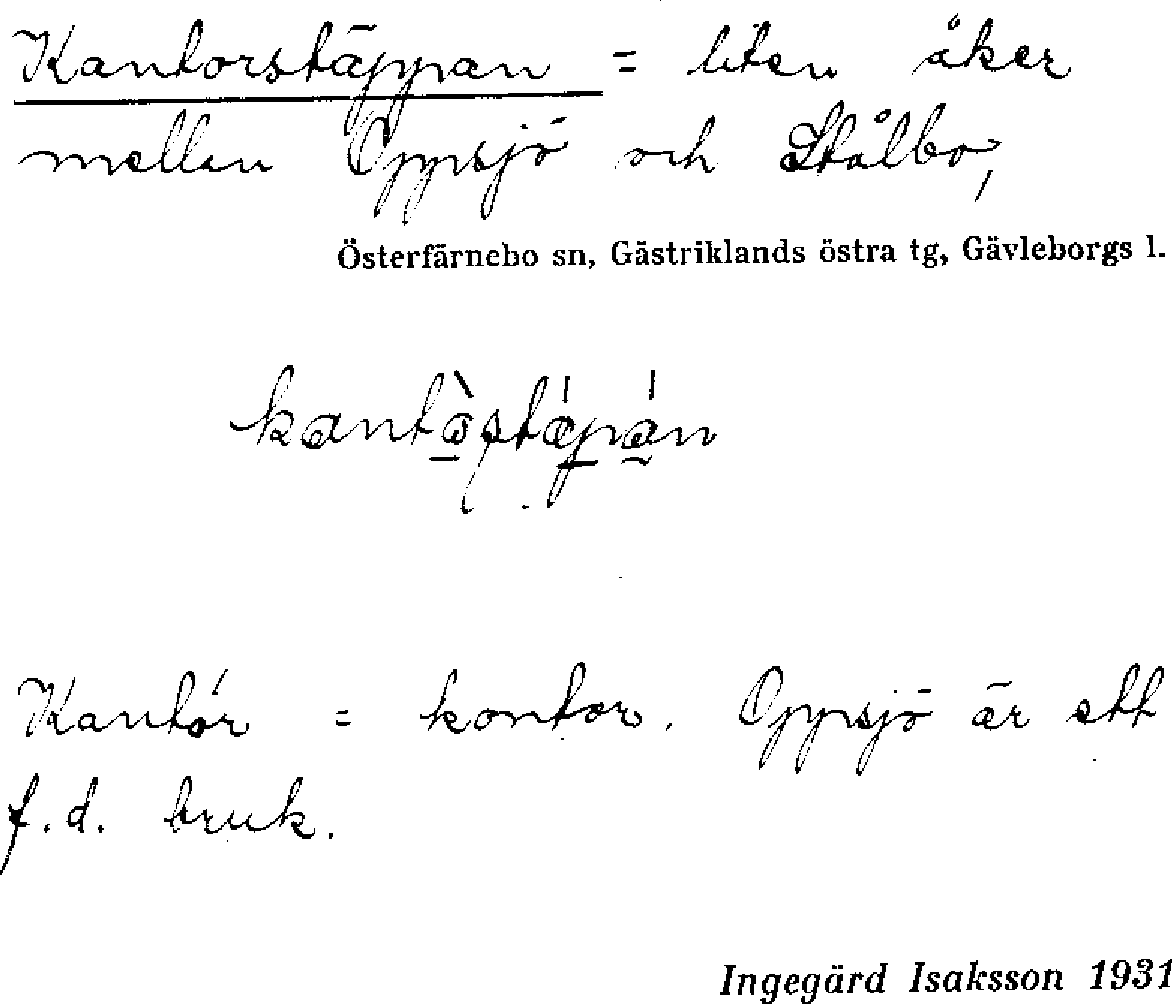 Kantorstäppan = liten åker
mellan Oppsjö och Stålbo,
Österfärnebo sn, Gästriklands östra tg, Gävleborgs l.
Kantór = kontor. Oppsjö är ett
f.d. bruk.
Ingegärd Isaksson 1931